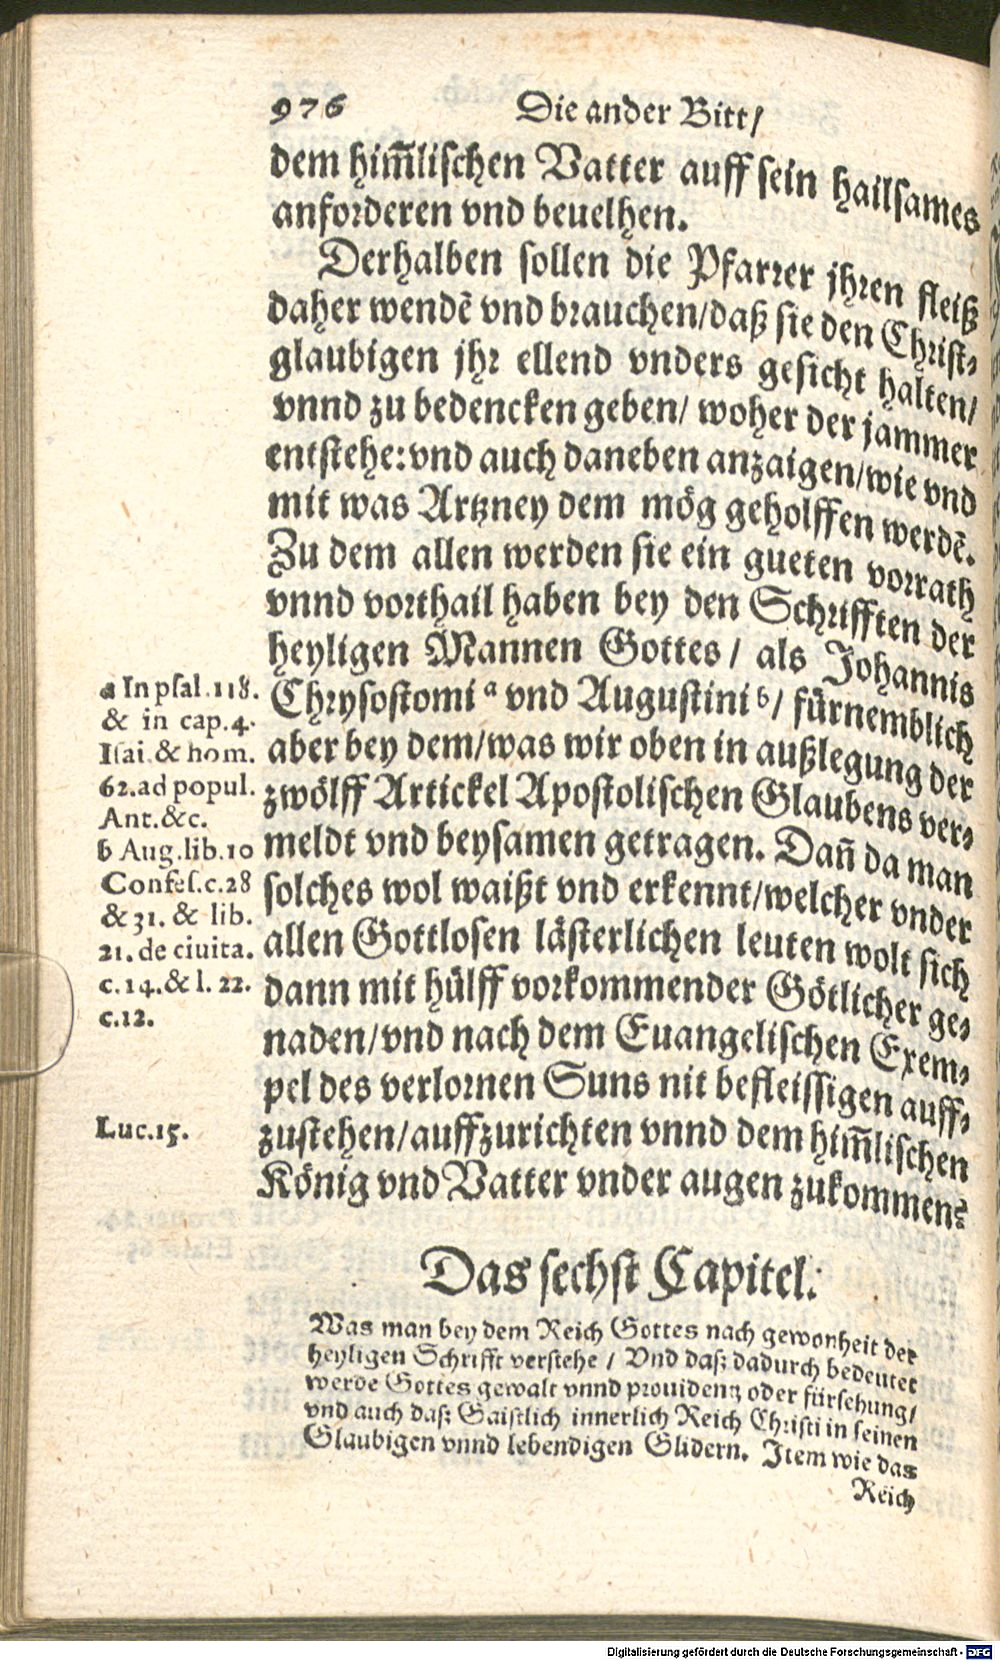 976 Die ander Bitt/
dem him̃lischen Vatter auff sein hailsames
anforderen vnd beuelhen.
Derhalben sollen die Pfarrer jhren fleiß
daher wendẽ vnd brauchen/daß sie den Christ⸗
glaubigen jhr ellend vnders gesicht halten/
vnnd zu bedencken geben/ woher der jammer
entstehe: vnd auch daneben anzaigen/wie vnd
mit was Artzney dem mög geholffen werdẽ.
Zu dem allen werden sie ein gueten vorrath
vnnd vorthail haben bey den Schrifften der
heyligen Mannen Gottes / als Johannis
Chrysostomi a vnd Augustini b/ fürnemblich
aber bey dem/was wir oben in außlegung der
zwölff Artickel Apostolischen Glaubens ver⸗
meldt vnd beysamen getragen. Dañ da man
solches wol waißt vnd erkennt/welcher vnder
allen Gottlosen lästerlichen leuten wolt sich
dann mit hülff vorkommender Götlicher ge⸗
naden/vnd nach dem Euangelischen Exem⸗
pel des verlornen Suns nit befleissigen auff⸗
zustehen/auffzurichten vnnd dem him̃lischen
König vnd Vatter vnder augen zukommen?
a In psal.118.
& in cap.4.
Isai.& hom.
62.ad popul.
Ant.&c.
b Aug.lib.10
Confes.c.28
& 31. & lib.
21. de ciuita.
c.14.& l. 22.
c.12.
Luc.15.
Das sechst Capitel.
Was man bey dem Reich Gottes nach gewonheit der
heyligen Schrifft verstehe / Vnd daß dadurch bedeutet
werde Gottes gewalt vnnd prouidentz oder fürsehung/
vnd auch daß Gaistlich innerlich Reich Christi in seinen
Glaubigen vnnd lebendigen Glidern. Item wie das
Reich
Digitalisierung gefördert durch die Deutsche Forschungsgemeinschaft - DFG